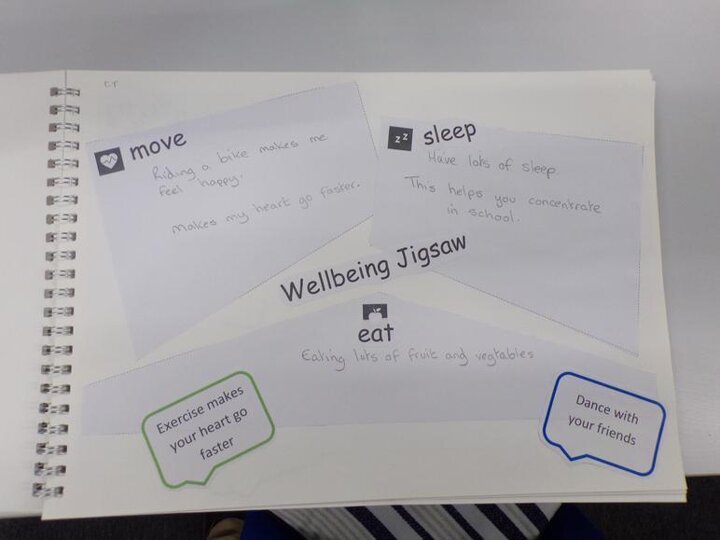 CT
move
Riding a bike makes me
feel happy.
makes my heart go faster.
zz
sleep
Have lots of sleep
This helps you concentrate
in school.
Wellbeing Jigsaw
eat
Eating lots of fruit and vegtables
Exercise makes
your heart go
faster
Dance with
your friends